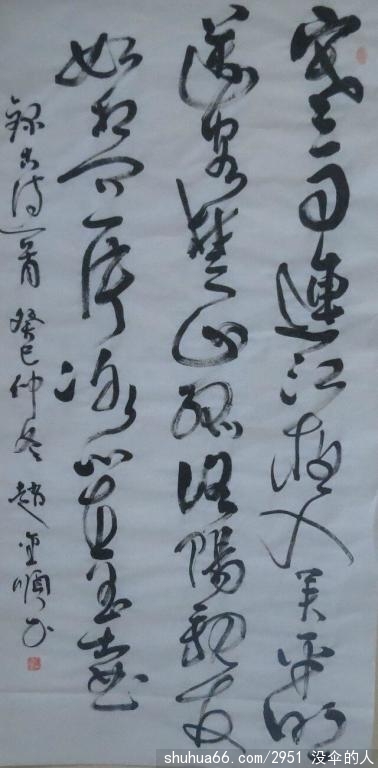 寒雨連江夜入吴平明
送客楚山孤洛陽親友
如相问一片冰心在玉壶
録古诗一首 癸巳仲冬 趙順书
shuhua66.com/2951 没伞的人